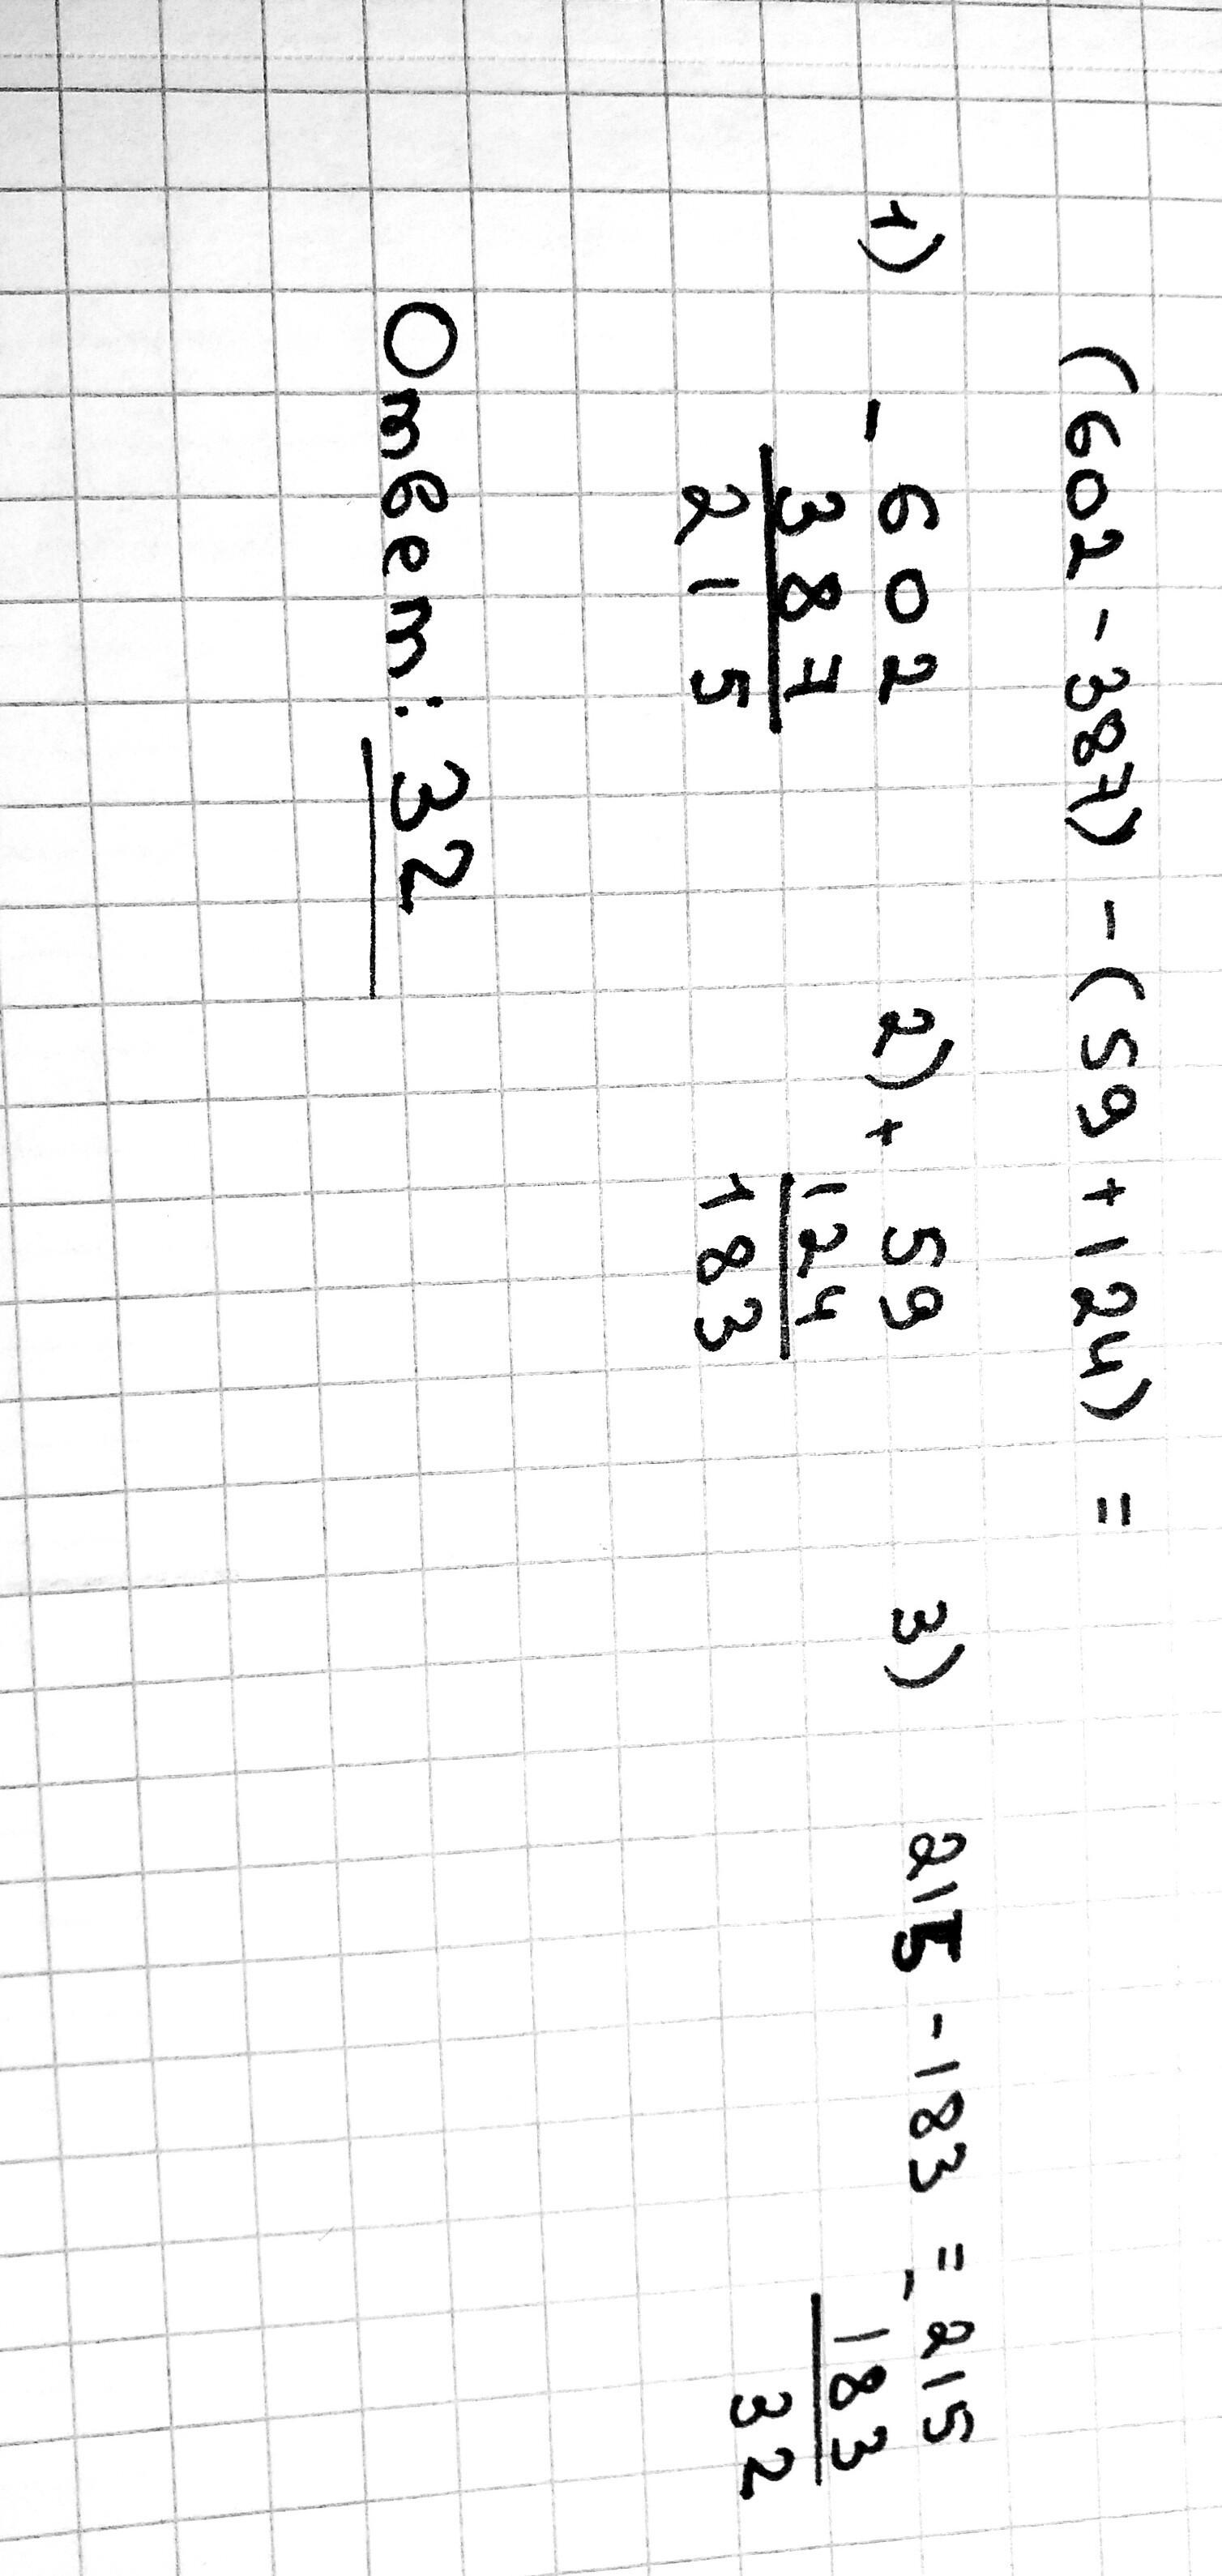 (602 - 387) - (59 + 124) =
1) - 602
387
215
2) + 59
124
183
3) 215 - 183 = - 215
183
32
Ответ: 32